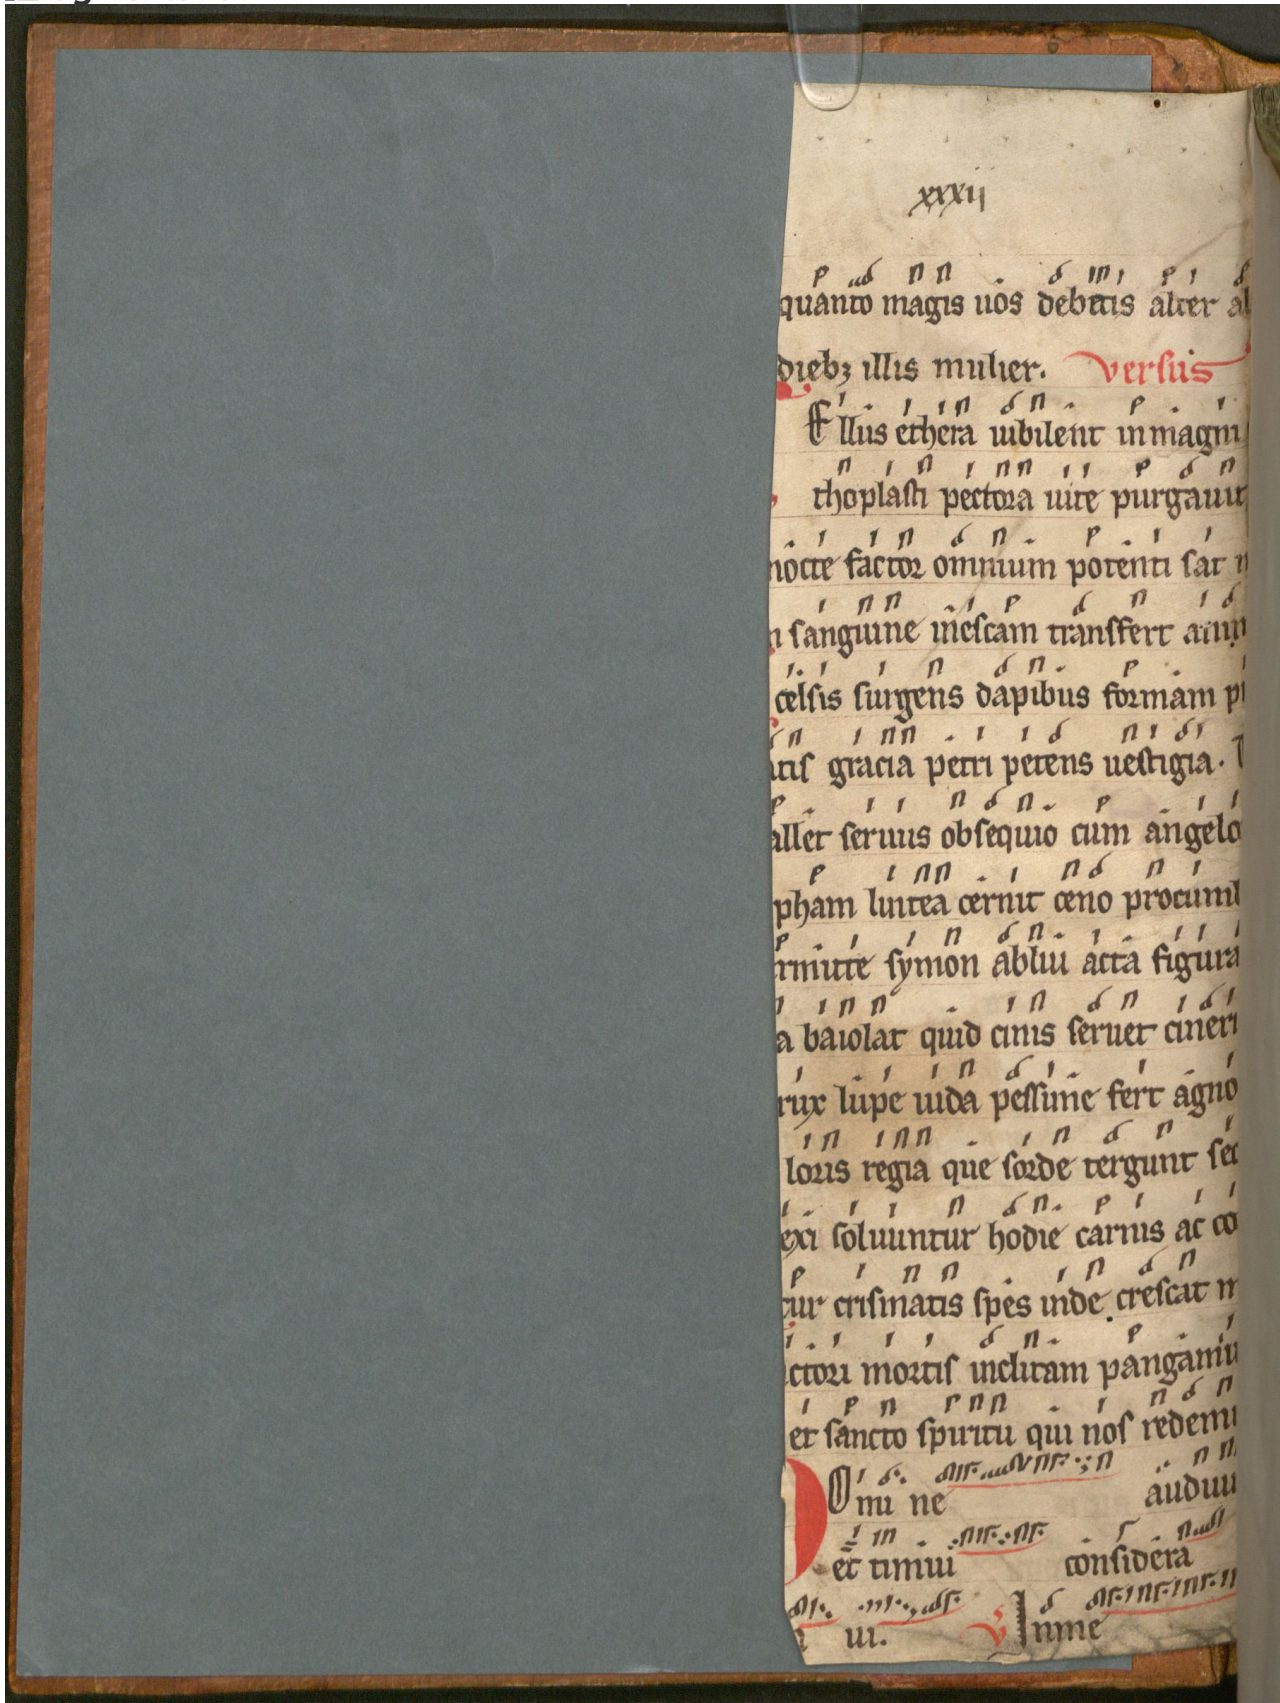 xxxii
quanto magis uos debitis alter al
dieb; illis mulier. versus
Ellus ethera iubilent in magni
thoplasti pectora uite purgauit
nocte factor omnium potenti sat
sanguine inescam transfert
celsis surgens dapibus formam
atis gracia petri petens uestigia.
allet seruus obsequio cum angelo
pham lintea cernit ceno procumb
rmitte symon ablui acta figura
a baiolat quid cinis seruet cineri
rux lupe uida pessime fert agno
loris regia que sorde tergunt
exi soluuntur hodie carnis ac co
tur crismatis spes inde crescat
ctori mortis inclitam pangamu
et sancto spiritu qui nos redemi
Domi ne audiui
et timui considera
ui. V In me